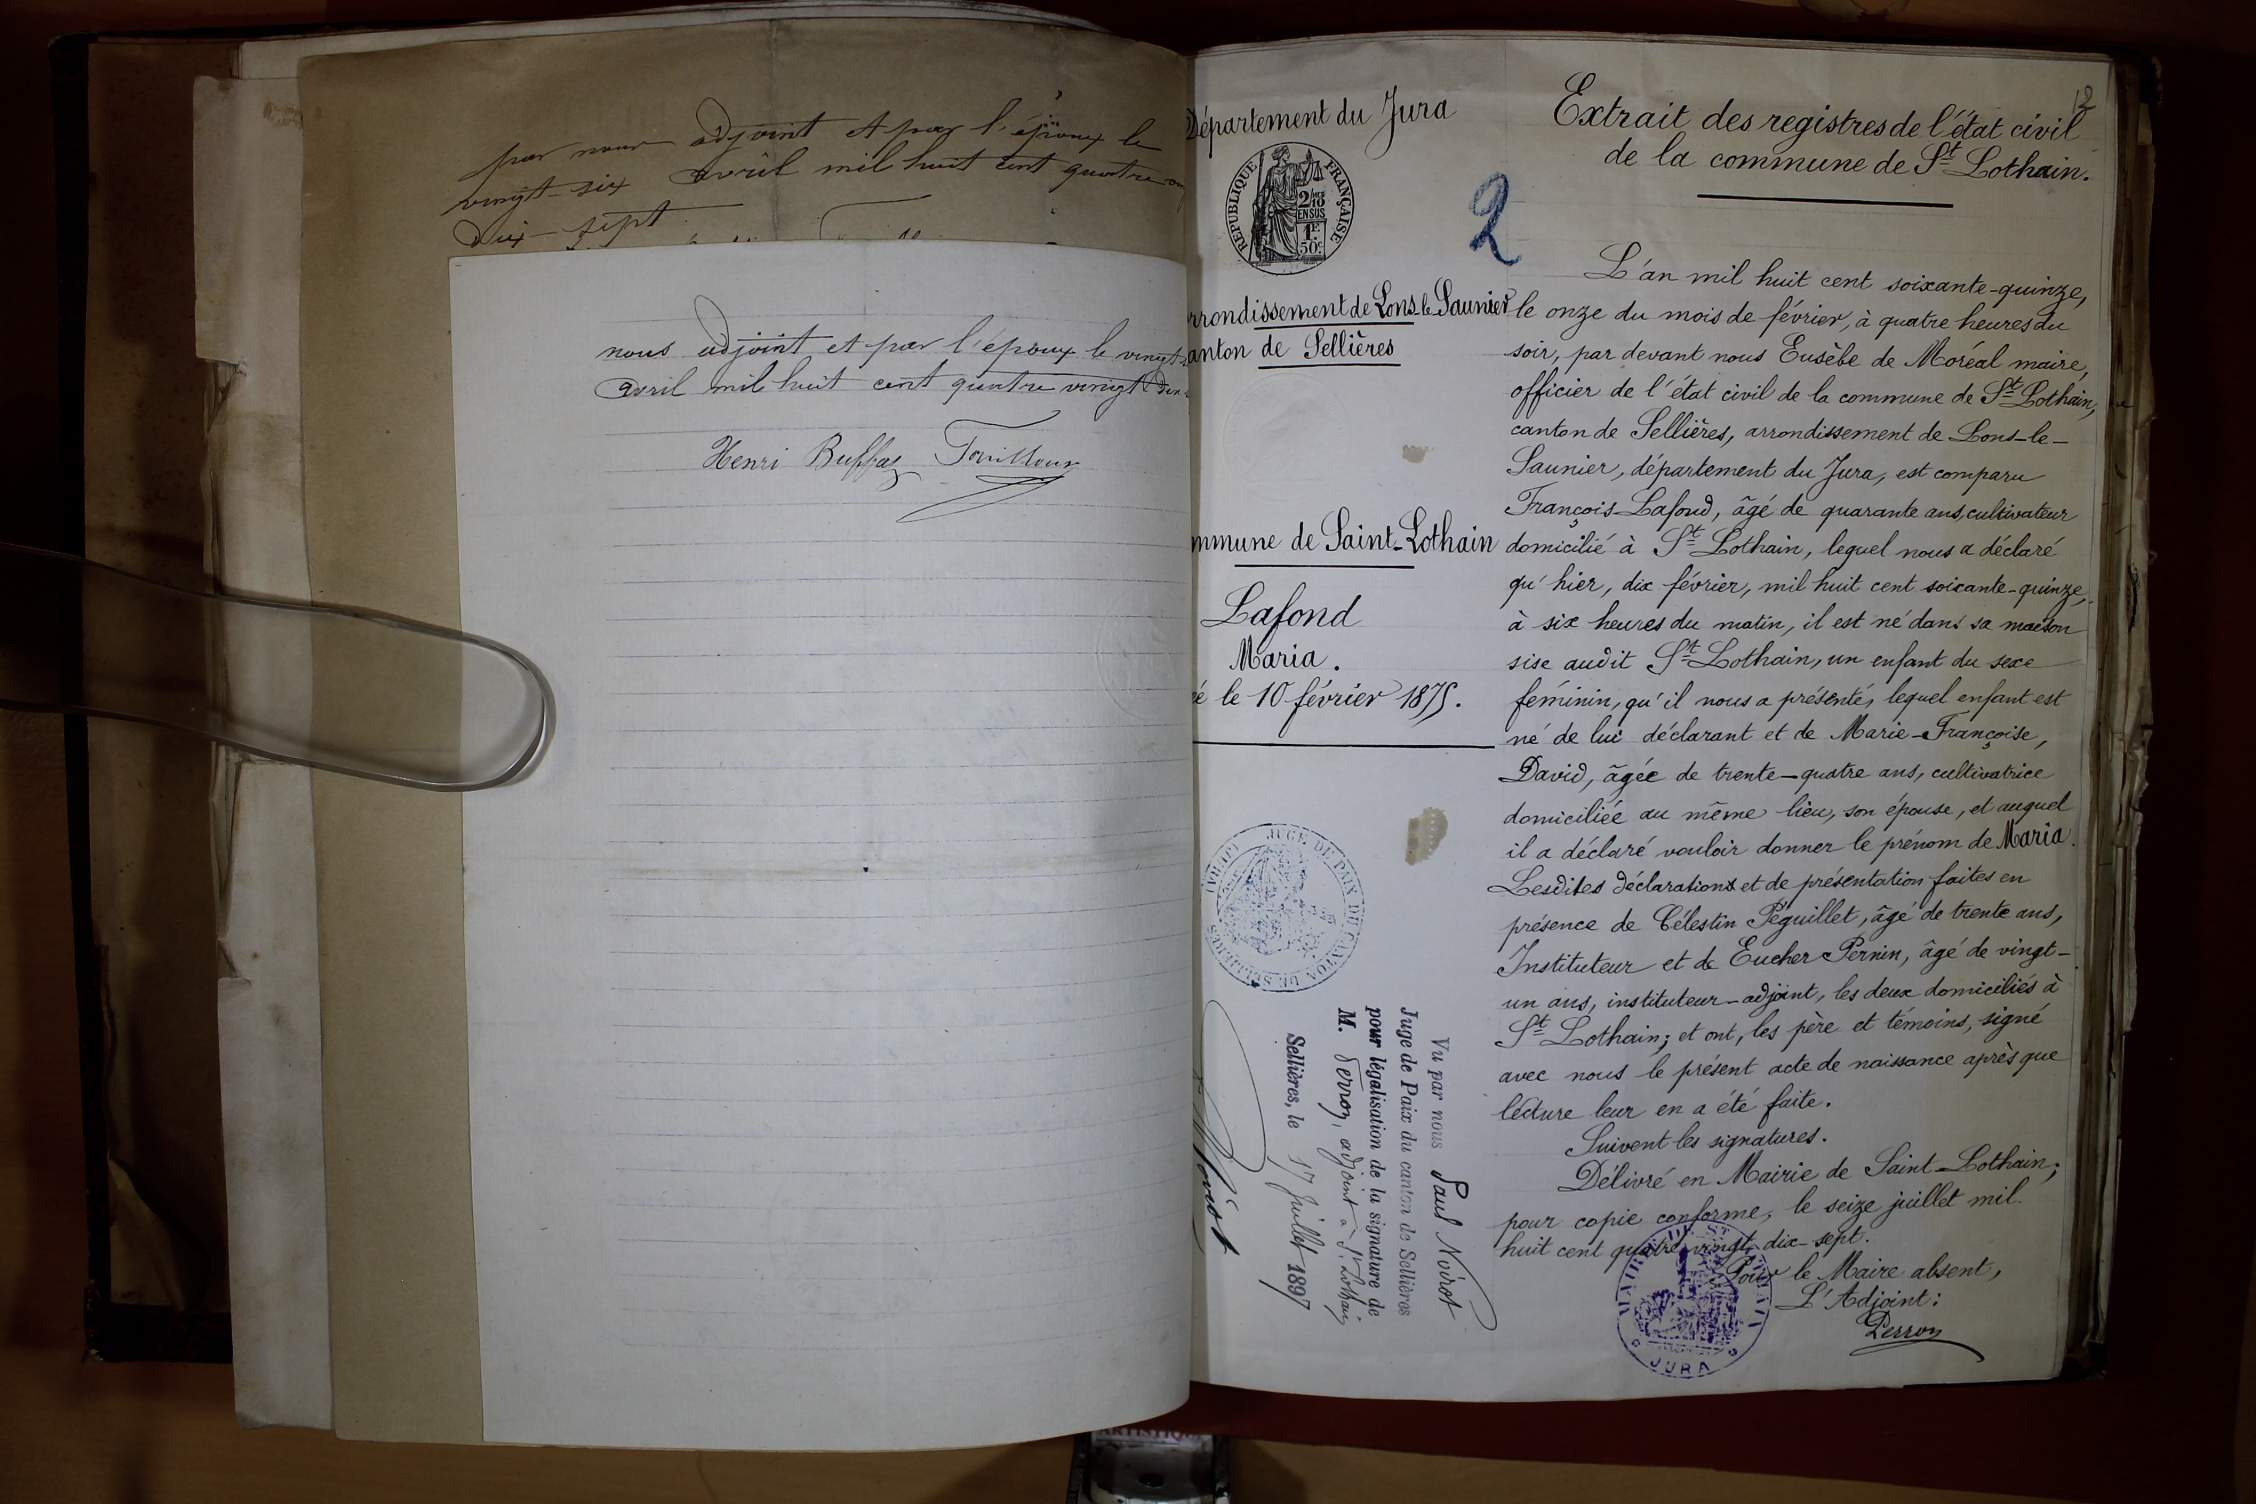 par nous adjoint et par l'époux le
vingt-six avril mil huit cent quatre
dix-sept
nous adjoint et par l'époux le vingt
avril mil huit cent quatre vingt dix
Henri Buffaz
12
Département du Jura
RÉPUBLIQUE FRANÇAISE
2/10
EN SUS
1F
50c
2
rrondissement de Lons-le-Saunier
anton de Sellières
mmune de Saint-Lothain
Lafond
Maria.
é le 10 février 1875.
JUGE DE PAIX DU CANTON DE SELLIÈRES (JURA)
Vu par nous Paul Noirot
Juge de Paix du canton de Sellières
pour légalisation de la signature de
M. Perron, adjoint à St Lothain
Sellières, le 17 Juillet 1897
Noirot
Extrait des registres de l'état civil
de la commune de St Lothain.
L'an mil huit cent soixante-quinze,
le onze du mois de février, à quatre heures du
soir, par devant nous Eusèbe de Moréal maire,
officier de l'état civil de la commune de St Lothain,
canton de Sellières, arrondissement de Lons-le-
Saunier, département du Jura, est comparu
François Lafond, âgé de quarante ans, cultivateur
domicilié à St Lothain, lequel nous a déclaré
qu'hier, dix février, mil huit cent soixante-quinze,
à six heures du matin, il est né dans sa maison
sise audit St Lothain, un enfant du sexe
féminin, qu'il nous a présenté, lequel enfant est
né de lui déclarant et de Marie-Françoise,
David, âgée de trente-quatre ans, cultivatrice
domiciliée au même lieu, son épouse, et auquel
il a déclaré vouloir donner le prénom de Maria.
Lesdites déclarations et de présentation faites en
présence de Célestin Péguillet, âgé de trente ans,
Instituteur et de Eucher Pernin, âgé de vingt-
un ans, instituteur-adjoint, les deux domiciliés à
St Lothain; et ont, les père et témoins, signé
avec nous le présent acte de naissance après que
lecture leur en a été faite.
Suivent les signatures.
Délivré en Mairie de Saint-Lothain,
pour copie conforme, le seize juillet mil
huit cent quatre vingt dix-sept.
Pour le Maire absent,
L'Adjoint:
Perron
JURA